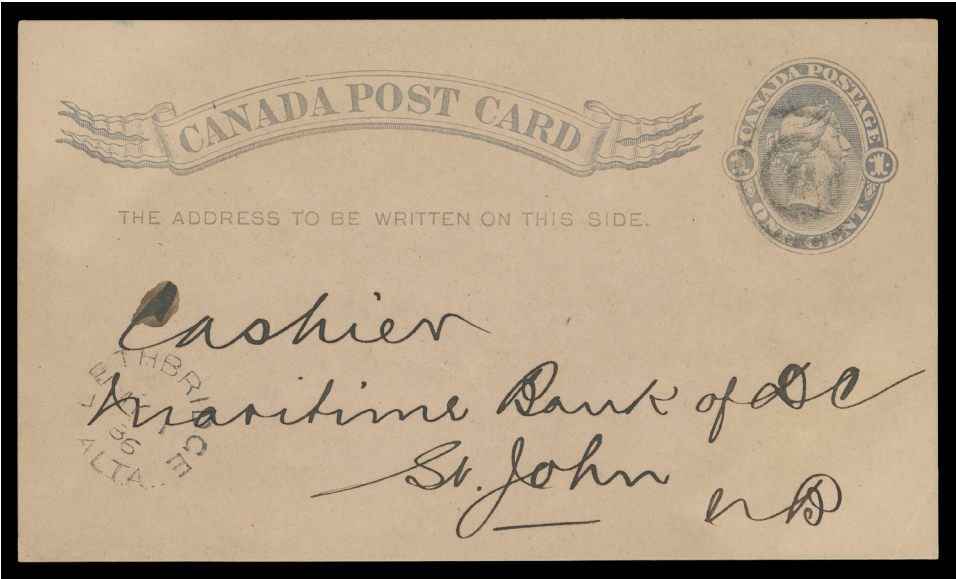 CANADA POST CARD
CANADA POSTAGE
1 1
ONE CENT
THE ADDRESS TO BE WRITTEN ON THIS SIDE.
Cashier
Maritime Bank of D C
St. John
N B
LETHBRIDGE
86
ALTA.